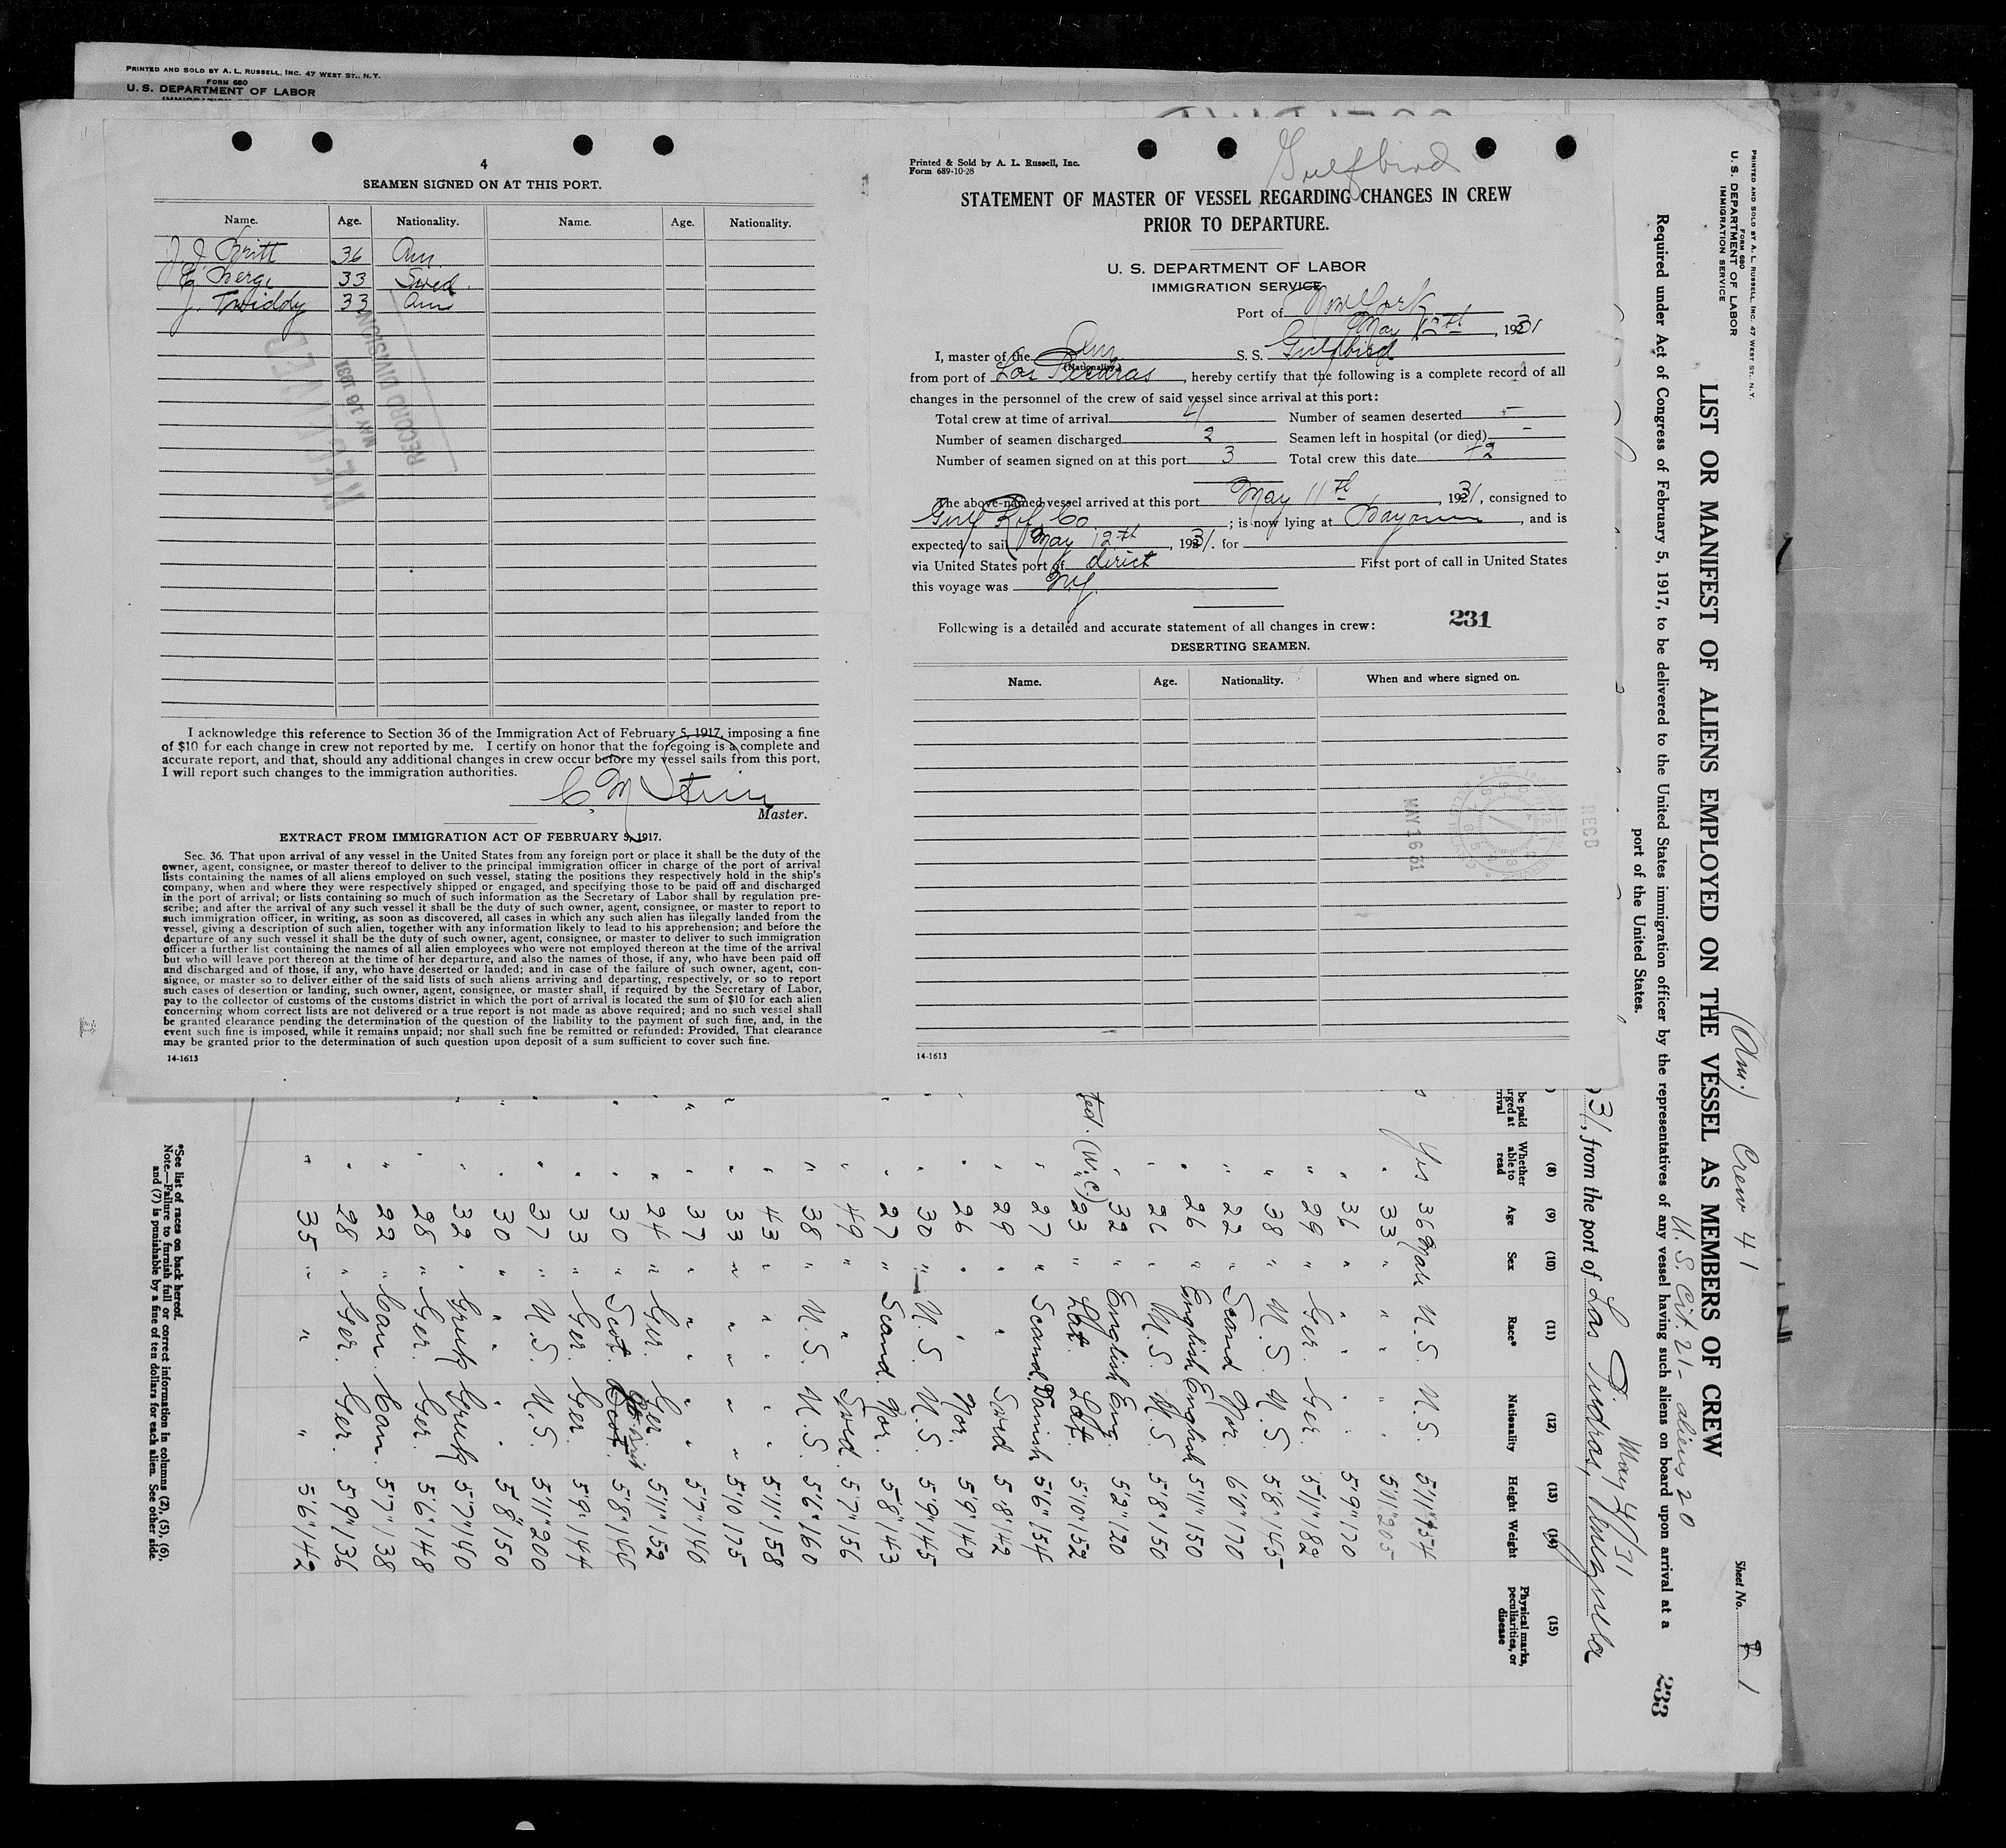 PRINTED AND SOLD BY A. L. RUSSELL, INC. 47 WEST ST., N. Y.
FORM 680
U. S. DEPARTMENT OF LABOR
4
SEAMEN SIGNED ON AT THIS PORT.
Name. Age. Nationality. Name. Age. Nationality.
J. J. Britt 36 Am
Berge 33 Swed.
J. Twiddy 33 Am
REVIEWED
MAY 16 1931
RECORD DIVISION
I acknowledge this reference to Section 36 of the Immigration Act of February 5, 1917, imposing a fine
of $10 for each change in crew not reported by me. I certify on honor that the foregoing is a complete and
accurate report, and that, should any additional changes in crew occur before my vessel sails from this port,
I will report such changes to the immigration authorities.
C. M.
Master.
EXTRACT FROM IMMIGRATION ACT OF FEBRUARY 5, 1917.
Sec. 36. That upon arrival of any vessel in the United States from any foreign port or place it shall be the duty of the
owner, agent, consignee, or master thereof to deliver to the principal immigration officer in charge of the port of arrival
lists containing the names of all aliens employed on such vessel, stating the positions they respectively hold in the ship's
company, when and where they were respectively shipped or engaged, and specifying those to be paid off and discharged
in the port of arrival; or lists containing so much of such information as the Secretary of Labor shall by regulation pre-
scribe; and after the arrival of any such vessel it shall be the duty of such owner, agent, consignee, or master to report to
such immigration officer, in writing, as soon as discovered, all cases in which any such alien has illegally landed from the
vessel, giving a description of such alien, together with any information likely to lead to his apprehension; and before the
departure of any such vessel it shall be the duty of such owner, agent, consignee, or master to deliver to such immigration
officer a further list containing the names of all alien employees who were not employed thereon at the time of the arrival
but who will leave port thereon at the time of her departure, and also the names of those, if any, who have been paid off
and discharged and of those, if any, who have deserted or landed; and in case of the failure of such owner, agent, con-
signee, or master so to deliver either of the said lists of such aliens arriving and departing, respectively, or so to report
such cases of desertion or landing, such owner, agent, consignee, or master shall, if required by the Secretary of Labor,
pay to the collector of customs of the customs district in which the port of arrival is located the sum of $10 for each alien
concerning whom correct lists are not delivered or a true report is not made as above required; and no such vessel shall
be granted clearance pending the determination of the question of the liability to the payment of such fine, and, in the
event such fine is imposed, while it remains unpaid; nor shall such fine be remitted or refunded: Provided, That clearance
may be granted prior to the determination of such question upon deposit of a sum sufficient to cover such fine.
14-1613
Printed & Sold by A. L. Russell, Inc.
Form 689-10-28
Gulfbird
STATEMENT OF MASTER OF VESSEL REGARDING CHANGES IN CREW
PRIOR TO DEPARTURE.
U. S. DEPARTMENT OF LABOR
IMMIGRATION SERVICE
Port of New York
May 12th, 1931
I, master of the Am S. S. Gulfbird
(Nationality)
from port of Las Piedras, hereby certify that the following is a complete record of all
changes in the personnel of the crew of said vessel since arrival at this port:
Total crew at time of arrival 41 Number of seamen deserted -
Number of seamen discharged 2 Seamen left in hospital (or died) -
Number of seamen signed on at this port 3 Total crew this date 42
The above-named vessel arrived at this port May 11th, 1931, consigned to
Gulf Ref. Co; is now lying at Bayonne, and is
expected to sail May 12th, 1931. for
via United States port of dirict First port of call in United States
this voyage was N.Y.
Following is a detailed and accurate statement of all changes in crew:
231
DESERTING SEAMEN.
Name. Age. Nationality. When and where signed on.
MAY 16 31
RECD
14-1613
PRINTED AND SOLD BY A. L. RUSSELL, INC. 47 WEST ST., N. Y.
FORM 680
U. S. DEPARTMENT OF LABOR
IMMIGRATION SERVICE
(Am.) Crew 41
Sheet No. 1
LIST OR MANIFEST OF ALIENS EMPLOYED ON THE VESSEL AS MEMBERS OF CREW
U. S. Cit. 21 - aliens 20
Required under Act of Congress of February 5, 1917, to be delivered to the United States immigration officer by the representatives of any vessel having such aliens on board upon arrival at a
port of the United States.
233
May 4/31
31, from the port of Las Piedras, Venezuela
(8) (9) (10) (11) (12) (13) (14) (15)
be paid
rged at
rival
Whether able to read Age Sex Race* Nationality Height Weight Physical marks, peculiarities, or disease
Yes 36 Male U.S. U.S. 5'11" 154
" 33 " " " 5'11" 205
" 36 " " " 5'9" 170
" 29 " Ger. Ger. 5'11" 182
" 38 " U.S. U.S. 5'8" 145
" 22 " Scand Nor. 6'0" 170
" 26 " English English 5'11" 150
" 26 " U.S. U.S. 5'8" 150
" 32 " English Eng 5'2" 120
ted. (W.C.) " 23 " Lat. Lat. 5'10" 152
" 27 " Scand. Danish 5'6" 154
" 29 " " Swed 5'8" 142
" 26 " " Nor. 5'9" 140
" 30 " U.S. U.S. 5'9" 145
" 27 " Scand. Nor. 5'8" 143
" 49 " " Swed. 5'7" 156
" 38 " U.S. U.S. 5'6" 160
" 43 " " " 5'11" 158
" 33 " " " 5'10" 175
" 37 " " " 5'7" 146
" 24 " Ger Ger 5'11" 152
" 30 " Scot. 5'8" 166
" 33 " Ger. Ger. 5'9" 144
" 37 " U.S. U.S. 5'11" 200
" 30 " " " 5'8" 150
" 32 " Greek Greek 5'7" 140
" 28 " Ger. Ger. 5'6" 148
" 22 " Can. Can. 5'7" 138
" 28 " Ger. Ger. 5'9" 136
" 35 " " " 5'6" 142
*See list of races on back hereof.
Note.—Failure to furnish full or correct information in columns (2), (5), (6),
and (7) is punishable by a fine of ten dollars for each alien. See other side.